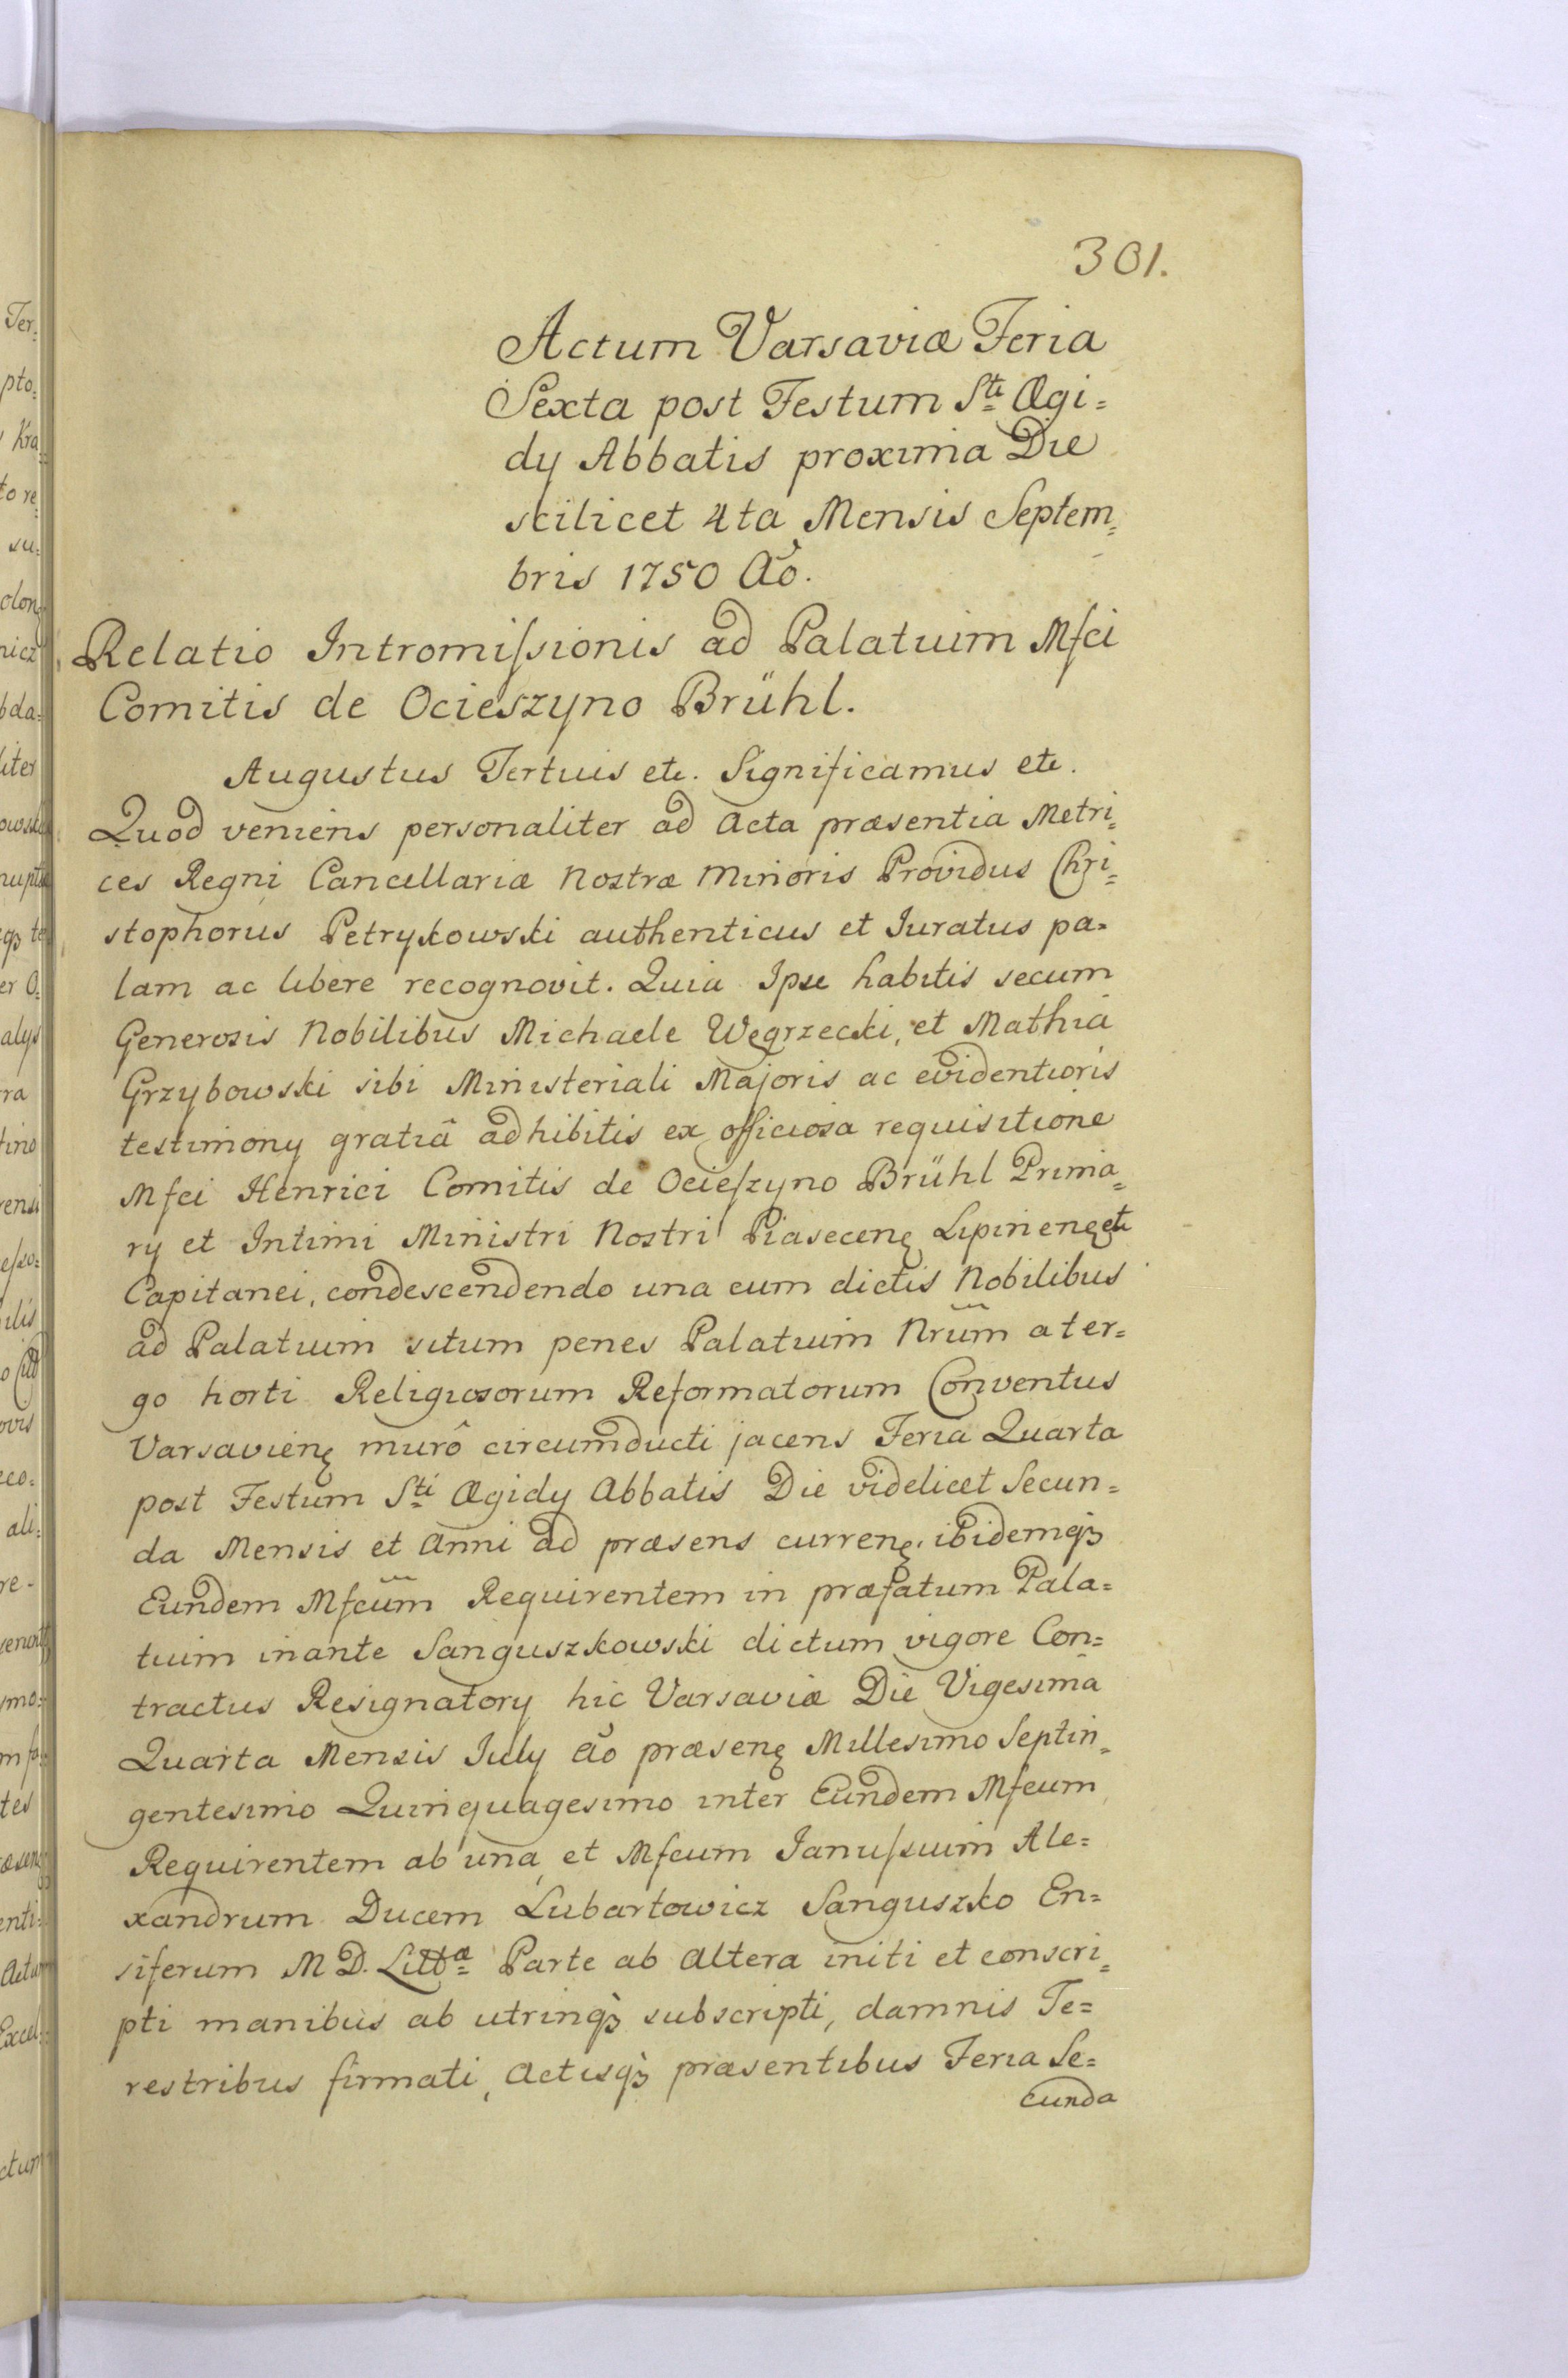 301.
Actum Varsaviæ Feria
Sexta post Festum Sti Ægi=
dy Abbatis proxima Die
scilicet 4ta Mensis Septem=
bris 1750 Ao.
Relatio Intromiſsionis ad Palatium Mfci
Comitis de Ocieszyno Brühl.
Augustus Tertius etc. Significamus etc.
Quod veniens personaliter ad Acta præsentia Metri=
ces Regni Cancellariæ Nostræ Minoris Providus Chri=
stophorus Petrykowski authenticus et Iuratus pa=
lam ac libere recognovit. Quia Ipse habitis secum
Generosis Nobilibus Michaele Węgrzecki, et Mathia
Grzybowski sibi Ministeriali Majoris ac evidentioris
testimony gratiâ adhibitis ex officiosa requisitione
Mfci Henrici Comitis de Ocieſzyno Brühl Prima=
ry et Intimi Ministri Nostri Piasecenę Lipinenę etc
Capitanei, condescendendo una cum dictis Nobilibus
ad Palatium situm penes Palatium Nrum a ter=
go horti Religiosorum Reformatorum Conventus
Varsavienę murô circumducti jacens Feria Quarta
post Festum Sti Ægidy Abbatis Die videlicet Secun=
da Mensis et Anni ad præsens currenę. ibidemqȝ
Eundem Mfcum Requirentem in præfatum Pala=
tium inante Sanguszkowski dictum vigore Con=
tractus Resignatory hic Varsaviæ Die Vigesima
Quarta Mensis July Ao præsenę Millesimo Septin=
gentesimo Quinquagesimo inter Eundem Mfcum
Requirentem ab una, et Mfcum Ianuſsium Ale=
xandrum Ducem Lubartowicz Sanguszko En=
siferum M D. Littæ Parte ab altera initi et conscri=
pti manibus ab utrinqȝ subscripti, damnis Te=
restribus firmati, Actisqȝ præsentibus Feria Se=
cunda